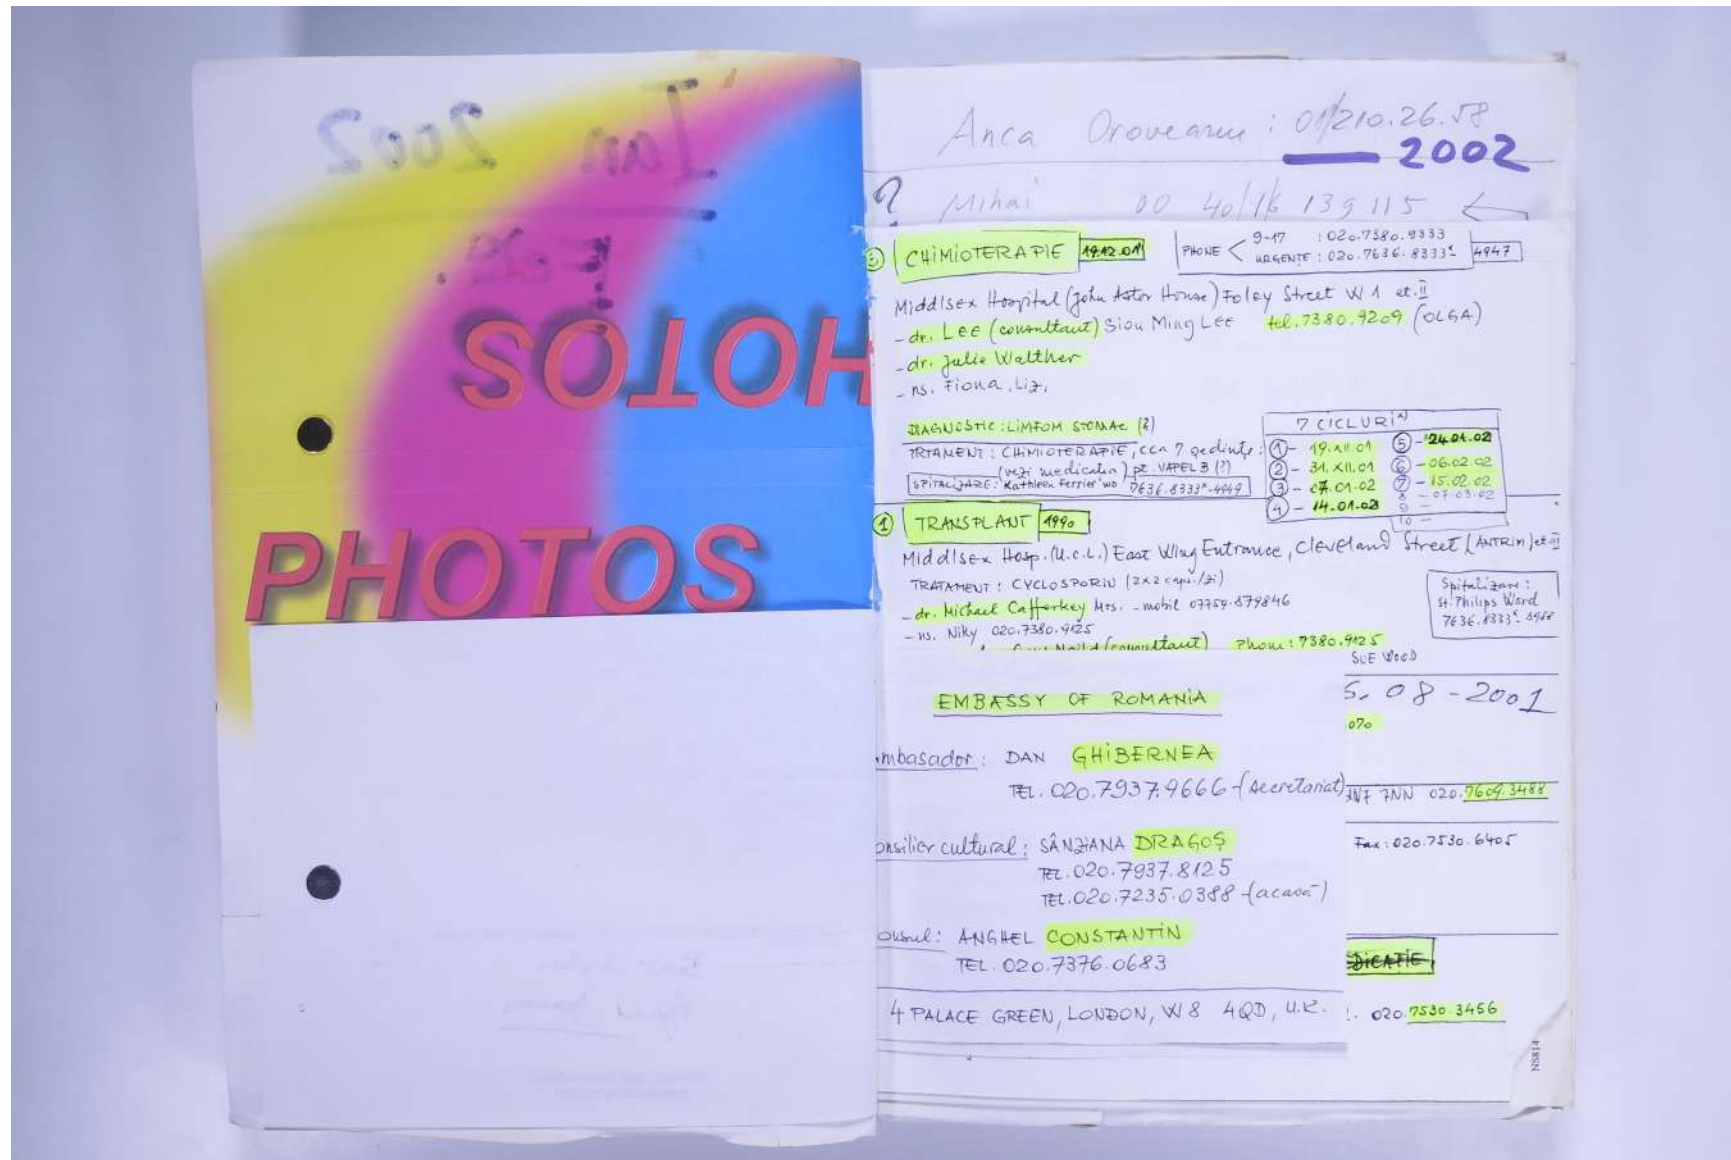 Ian 2002
Feb.
PHOTOS
PHOTOS
Anca Oroveanu : 01/210.26.58
2002
? Mihai 00 40/1/6 139 115
CHIMIOTERAPIE 19.12.01
PHONE < 9-17 : 020.7380.9333
URGENȚE : 020.7636.8333x 4947
Middlsex Hospital (John Astor House) Foley Street W1 et. II
- dr. Lee (consultant) Siou Ming Lee tel. 7380.9209 (OLGA)
- dr. Julie Walther
- ns. Fiona, Liz,
DIAGNOSTIC : LIMFOM STOMAC (?)
TRTAMENT : CHIMIOTERAPIE, cca 7 ședințe :
(vezi medicatia) pt.
SPITALIZARE : Kathleen Ferrier wo 7636.8333x-4949
7 CICLURI
1 - 19.XII.01 5 - 24.01.02
2 - 31.XII.01 6 - 06.02.02
3 - 07.01.02 7 - 15.02.02
4 - 14.01.02 8 - 07.03.02
9 -
10 -
1 TRANSPLANT 1990
Middlsex Hosp. (U.C.L.) East Wing Entrance, Cleveland Street (ANTRIM) et. III
TRATAMENT : CYCLOSPORIN (2x2 caps./zi)
- dr. Michael Cafferkey Mrs. - mobil 07759.879846
- ns. Niky 020.7380.9125
(consultant) Phone : 7380.9125
Spitalizare :
St. Philips Ward
7636.8333x-
SUE WOOD
5. 08 - 2001
070
7NN 020.7609.3488
Fax : 020.7530.6405
DICATIE
020.7530.3456
EMBASSY OF ROMANIA
mbasador : DAN GHIBERNEA
TEL. 020.7937.9666 - (secretariat)
onsilier cultural : SÂNZIANA DRAGOȘ
TEL. 020.7937.8125
TEL. 020.7235.0388 - (acasă)
onsul : ANGHEL CONSTANTIN
TEL. 020.7376.0683
4 PALACE GREEN, LONDON, W8 4QD, U.K.
NS814